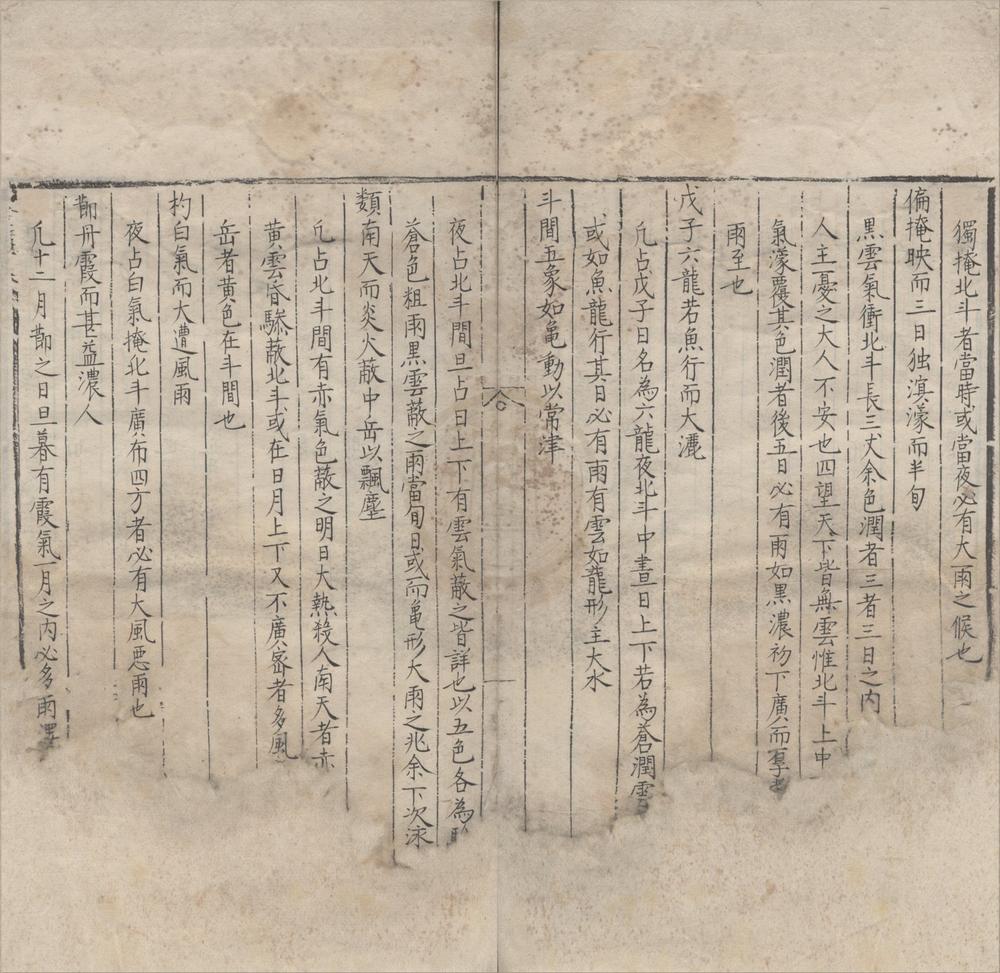 獨掩北斗者當時或當夜必有大雨之候也
偏掩映而三日独滇濛而半旬
黒雲氣衝北斗長三丈余色潤者三者三日之内
人主憂之大人不安也四望天下皆無雲惟北斗上中
氣濛覆其色潤者後五日必有雨如黒濃初下廣而厚者
雨至也
戊子六龍若魚行而大灑
凡占戊子日名為六龍夜北斗中晝日上下若為蒼潤雲
或如魚龍行其日必有雨有雲如龍形主大水
斗間五象如亀動以常津
夜占北斗間旦占日上下有雲氣蔽之皆詳也以五色各為
蒼色粗雨黒雲蔽之雨當旬日或而亀形大雨之兆余下次洡
類南天而炎火蔽中岳以飄塵
凡占北斗間有赤氣色蔽之明日大熱殺人南天者赤
黄雲昏䮞蔽北斗或在日月上下又不廣密者多風
岳者黄色在斗間也
杓白氣而大遭風雨
夜占白氣掩北斗廣布四方者必有大風悪雨也
莭丹霞而甚益濃人
凡十二月莭之日旦暮有霞氣一月之内必多雨澤